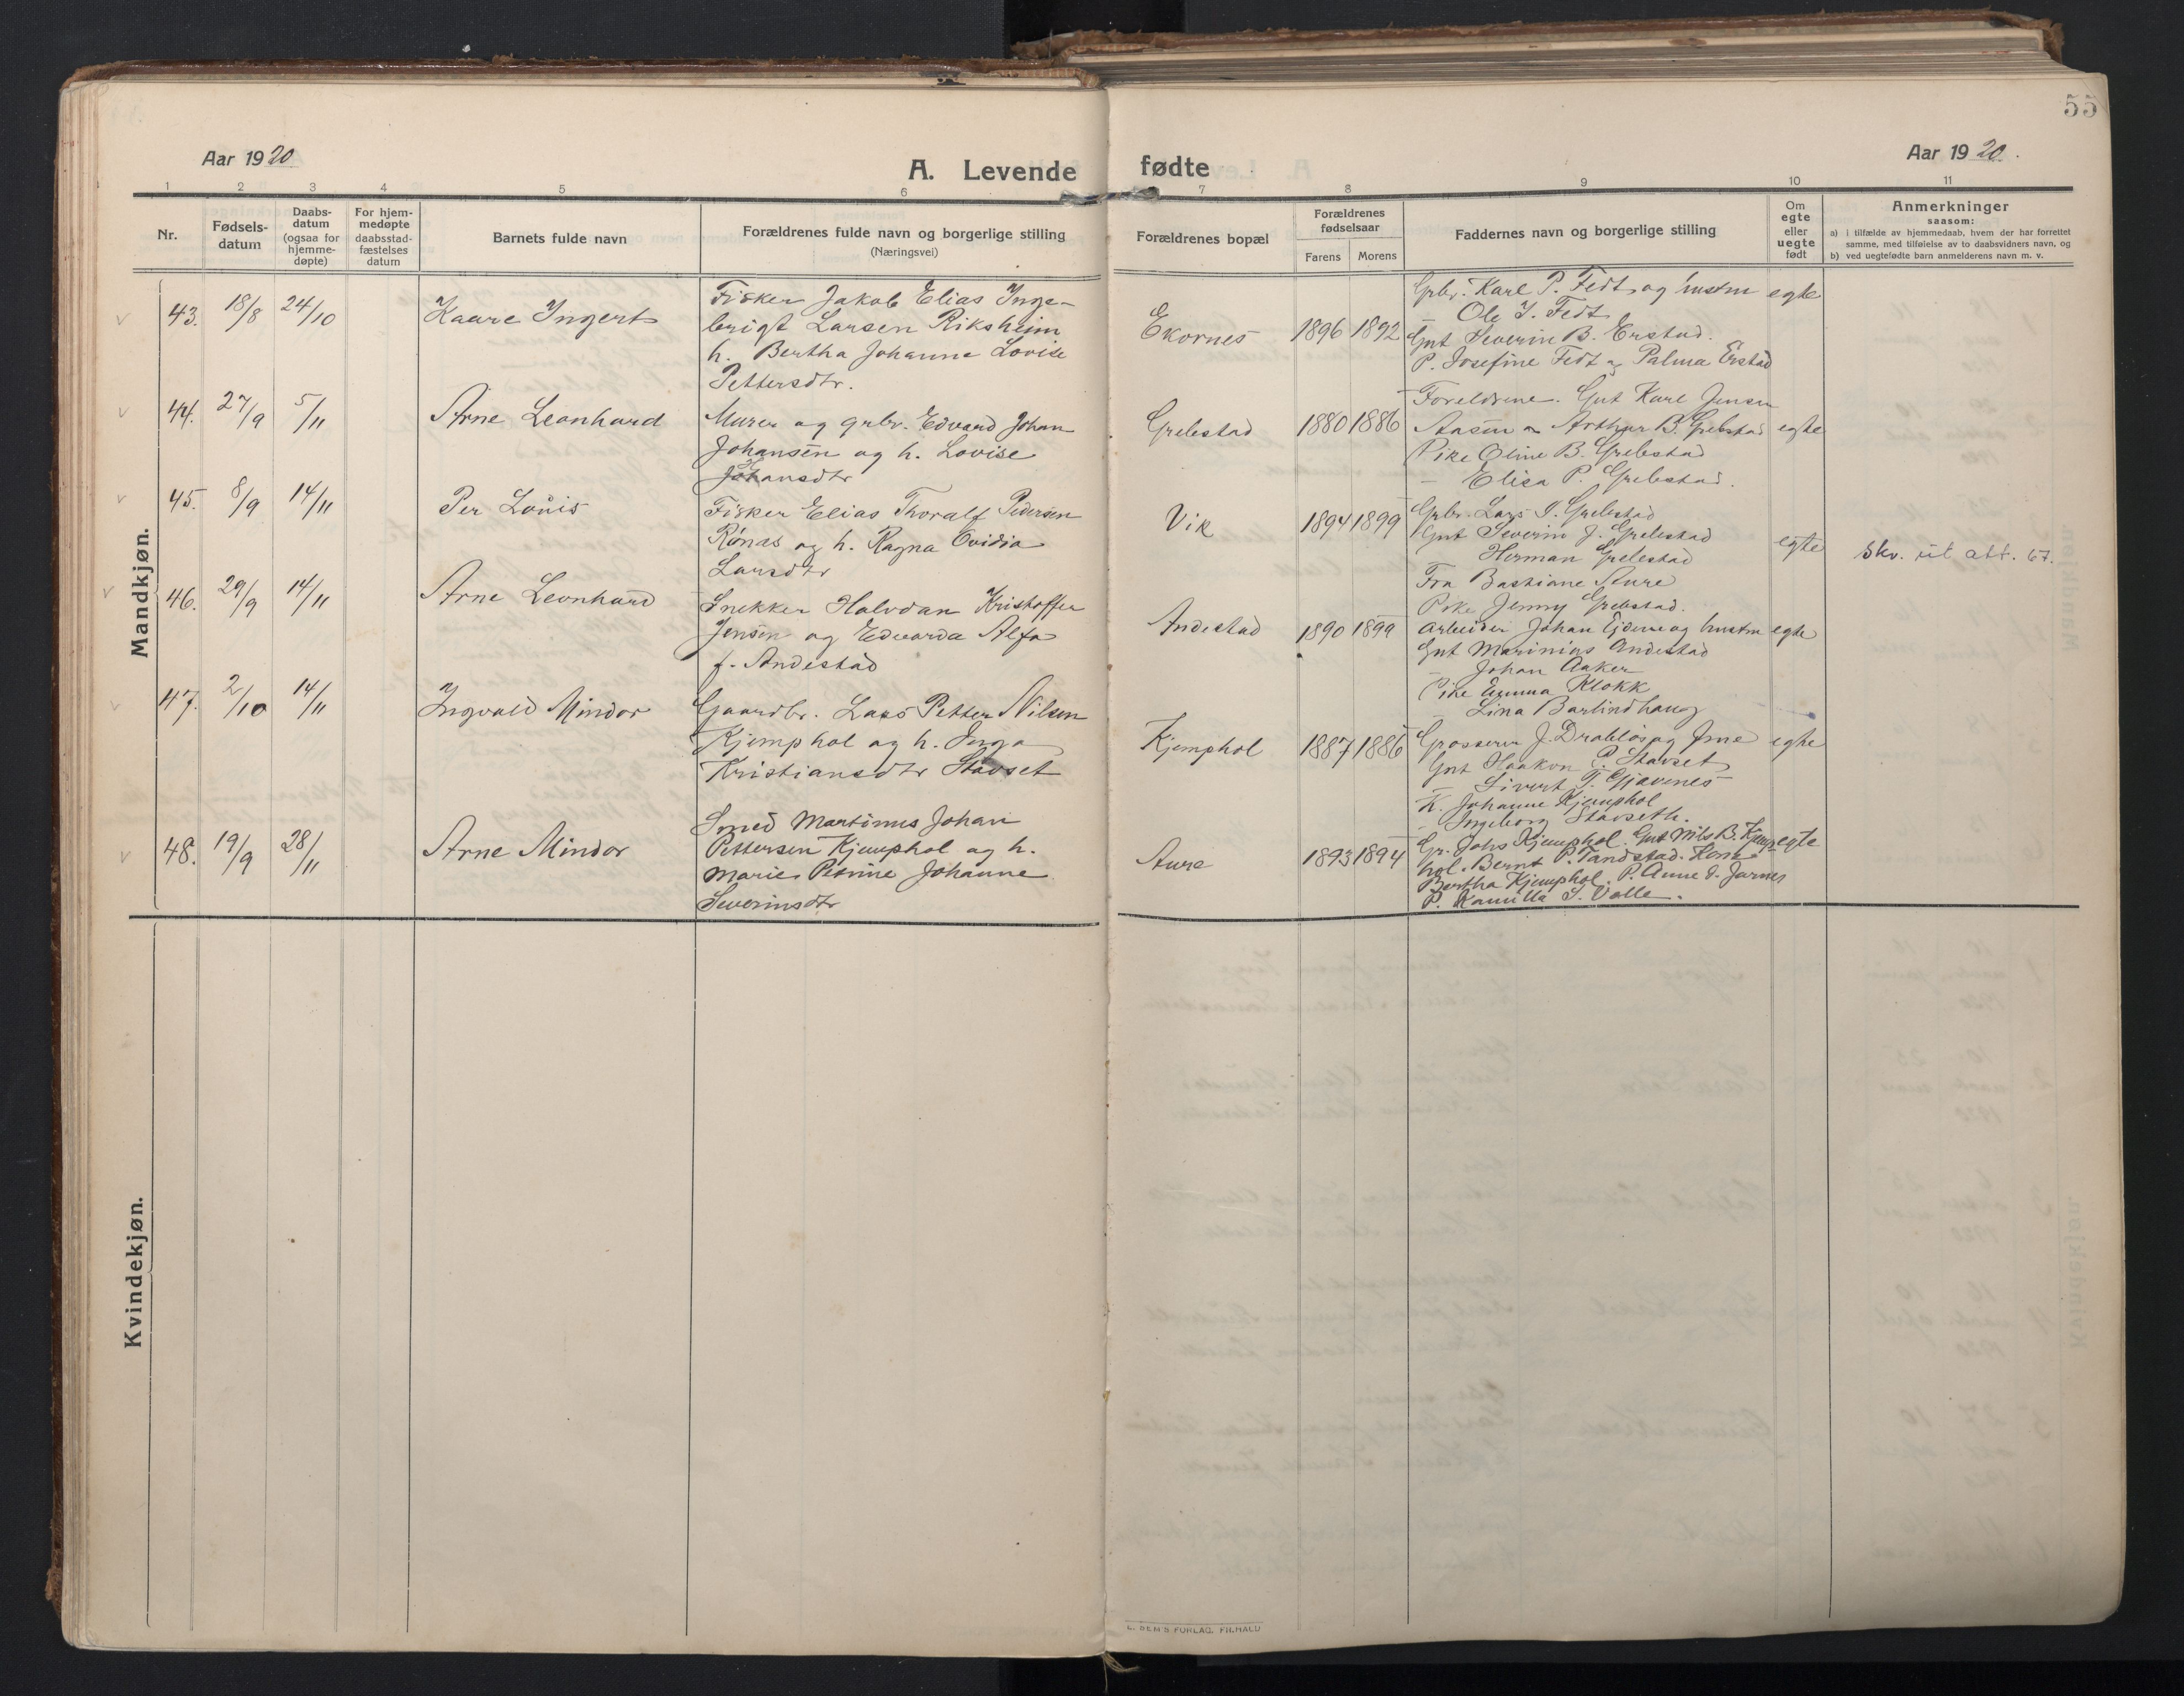 55
Aar 1920
A. Levende fødte
Aar 1920.
1 2 3 4 5 6 7 8 9 10 11
Nr.
Fødsels-
datum
Daabs-
datum
(ogsaa for
hjemme-
døpte)
For hjem-
medøpte
daabsstad-
fæstelses
datum
Barnets fulde navn
Forældrenes fulde navn og borgerlige stilling
(Næringsvei)
Forældrenes bopæl
Forældrenes
fødselsaar
Farens Morens
Faddernes navn og borgerlige stilling
Om
egte
eller
uegte
født
Anmerkninger
saasom:
a) i tilfælde av hjemmedaab, hvem der har forrettet
samme, med tilføielse av to daabsvidners navn, og
b) ved uegtefødte barn anmelderens navn m. v.
Mandkjøn.
43. 18/8 24/10 Kaare Ingert
Fisker Jakob Elias Inge-
brigt Larsen Riksheim
h. Bertha Johanne Lovise
Pettersdtr.
Ekornes 1896 1892
Grbr. Karl P. Fedt og hustru
Ole J. Fedt
Gut Severin B. Erstad.
P. Josefine Fedt og Palma Erstad
egte
44. 27/9 5/11 Arne Leonhard
Murer og grbr. Edvard Johan
Johansen og h. Lovise
Johansdtr
Grebstad 1880 1886
Foreldrene. Gut Karl Jensen
Aasen og Arthur B. Grebstad
Pike Oline B. Grebstad
— Elisa P. Grebstad.
egte
45. 8/9 14/11 Per Louis
Fisker Elias Thoralf Pedersen
Rönas og h. Ragna Ovidia
Larsdtr
Vik 1894 1899
Grbr. Lars I. Grebstad
Gut Severin J. Grebstad
Herman Grebstad
Fru Bastiane Aure
Pike Jenny Grebstad.
egte
Skv. ut att. 67.
46. 29/9 14/11 Arne Leonhard
Snekker Halvdan Kristoffer
Jensen og Edvarda Alfa
f. Andestad
Andestad 1890 1899
Arbeider Johan Ejdene og hustru
Gut Marinius Andestad
— Johan Aaker
Pike Emma Klokk
— Lina Barlindhaug
egte
47. 2/10 14/11 Ingvald Mindor
Gaardbr. Lars Petter Nilsen
Kjemphol og h. Inga
Kristiansdtr Stavset
Kjemphol 1887 1886
Grosserer J. Drabløs og frue
Gut Haakon P. Stavset
— Sivert T. Gjævenes
K. Johanne Kjemphol
— Ingeborg Stavseth.
egte
48. 19/9 28/11 Arne Mindor
Smed Martinus Johan
Pettersen Kjemphol og h.
Marie Petrine Johanne
Severinsdtr
Aure 1893 1894
Gr. Johs Kjemphol. Gut Nils B. Kjemp-
hol. Bernt P. Tandstad. Kone
Bertha Kjemphol. P. Anne S. Jarnes
P. Kamilla S. Valle.
egte
Kvindekjøn.
E. SEM'S FORLAG, FR.HALD